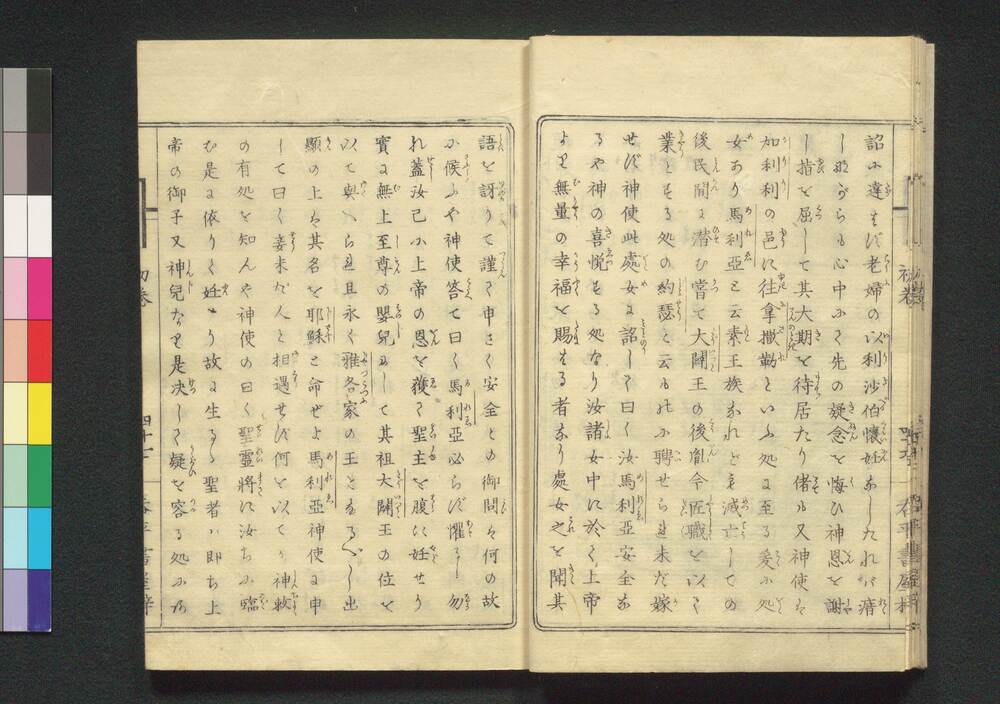 詔に違はず老婦の以利沙伯懐妊ありしたれバ瘖
し那がらも心中ふて先の疑念を悔ひ神恩を謝
し指を屈して其大期を待居たり偖も又神使ハ
加利利の邑に往拿撒勒といふ処に至る爰に処
女あり馬利亞と云素王族なれども滅亡しての
後民間に潜む嘗て大闢王の後胤今匠職を以て
業とする処の約瑟と云ものに聘せられ未だ嫁
せず神使此處女に詔して曰く汝馬利亞安全な
るや神の喜悦する処なり汝諸女中に於て上帝
より無量の幸福を賜はる者なり處女之を聞其
語を訝りて謹て申さく安全との御問ハ何の故
に候ふや神使答て曰く馬利亞必らず懼るゝ勿
れ蓋汝己に上帝の恩を獲て聖主を腹に妊せり
實に無上至尊の嬰兒にして其祖大闢王の位を
以て與へられ且永く雅各家の王となるべし出
顯の上ハ其名を耶穌と命ぜよ馬利亞神使に申
して曰く妾未だ人と相遇せず何を以てか神赦
の有処を知んや神使の曰く聖靈將に汝ちに臨
む是に依りて妊せり故に生るゝ聖者ハ即ち上
帝の御子又神兒なり是决して疑を容る処に乃
初巻
四十一